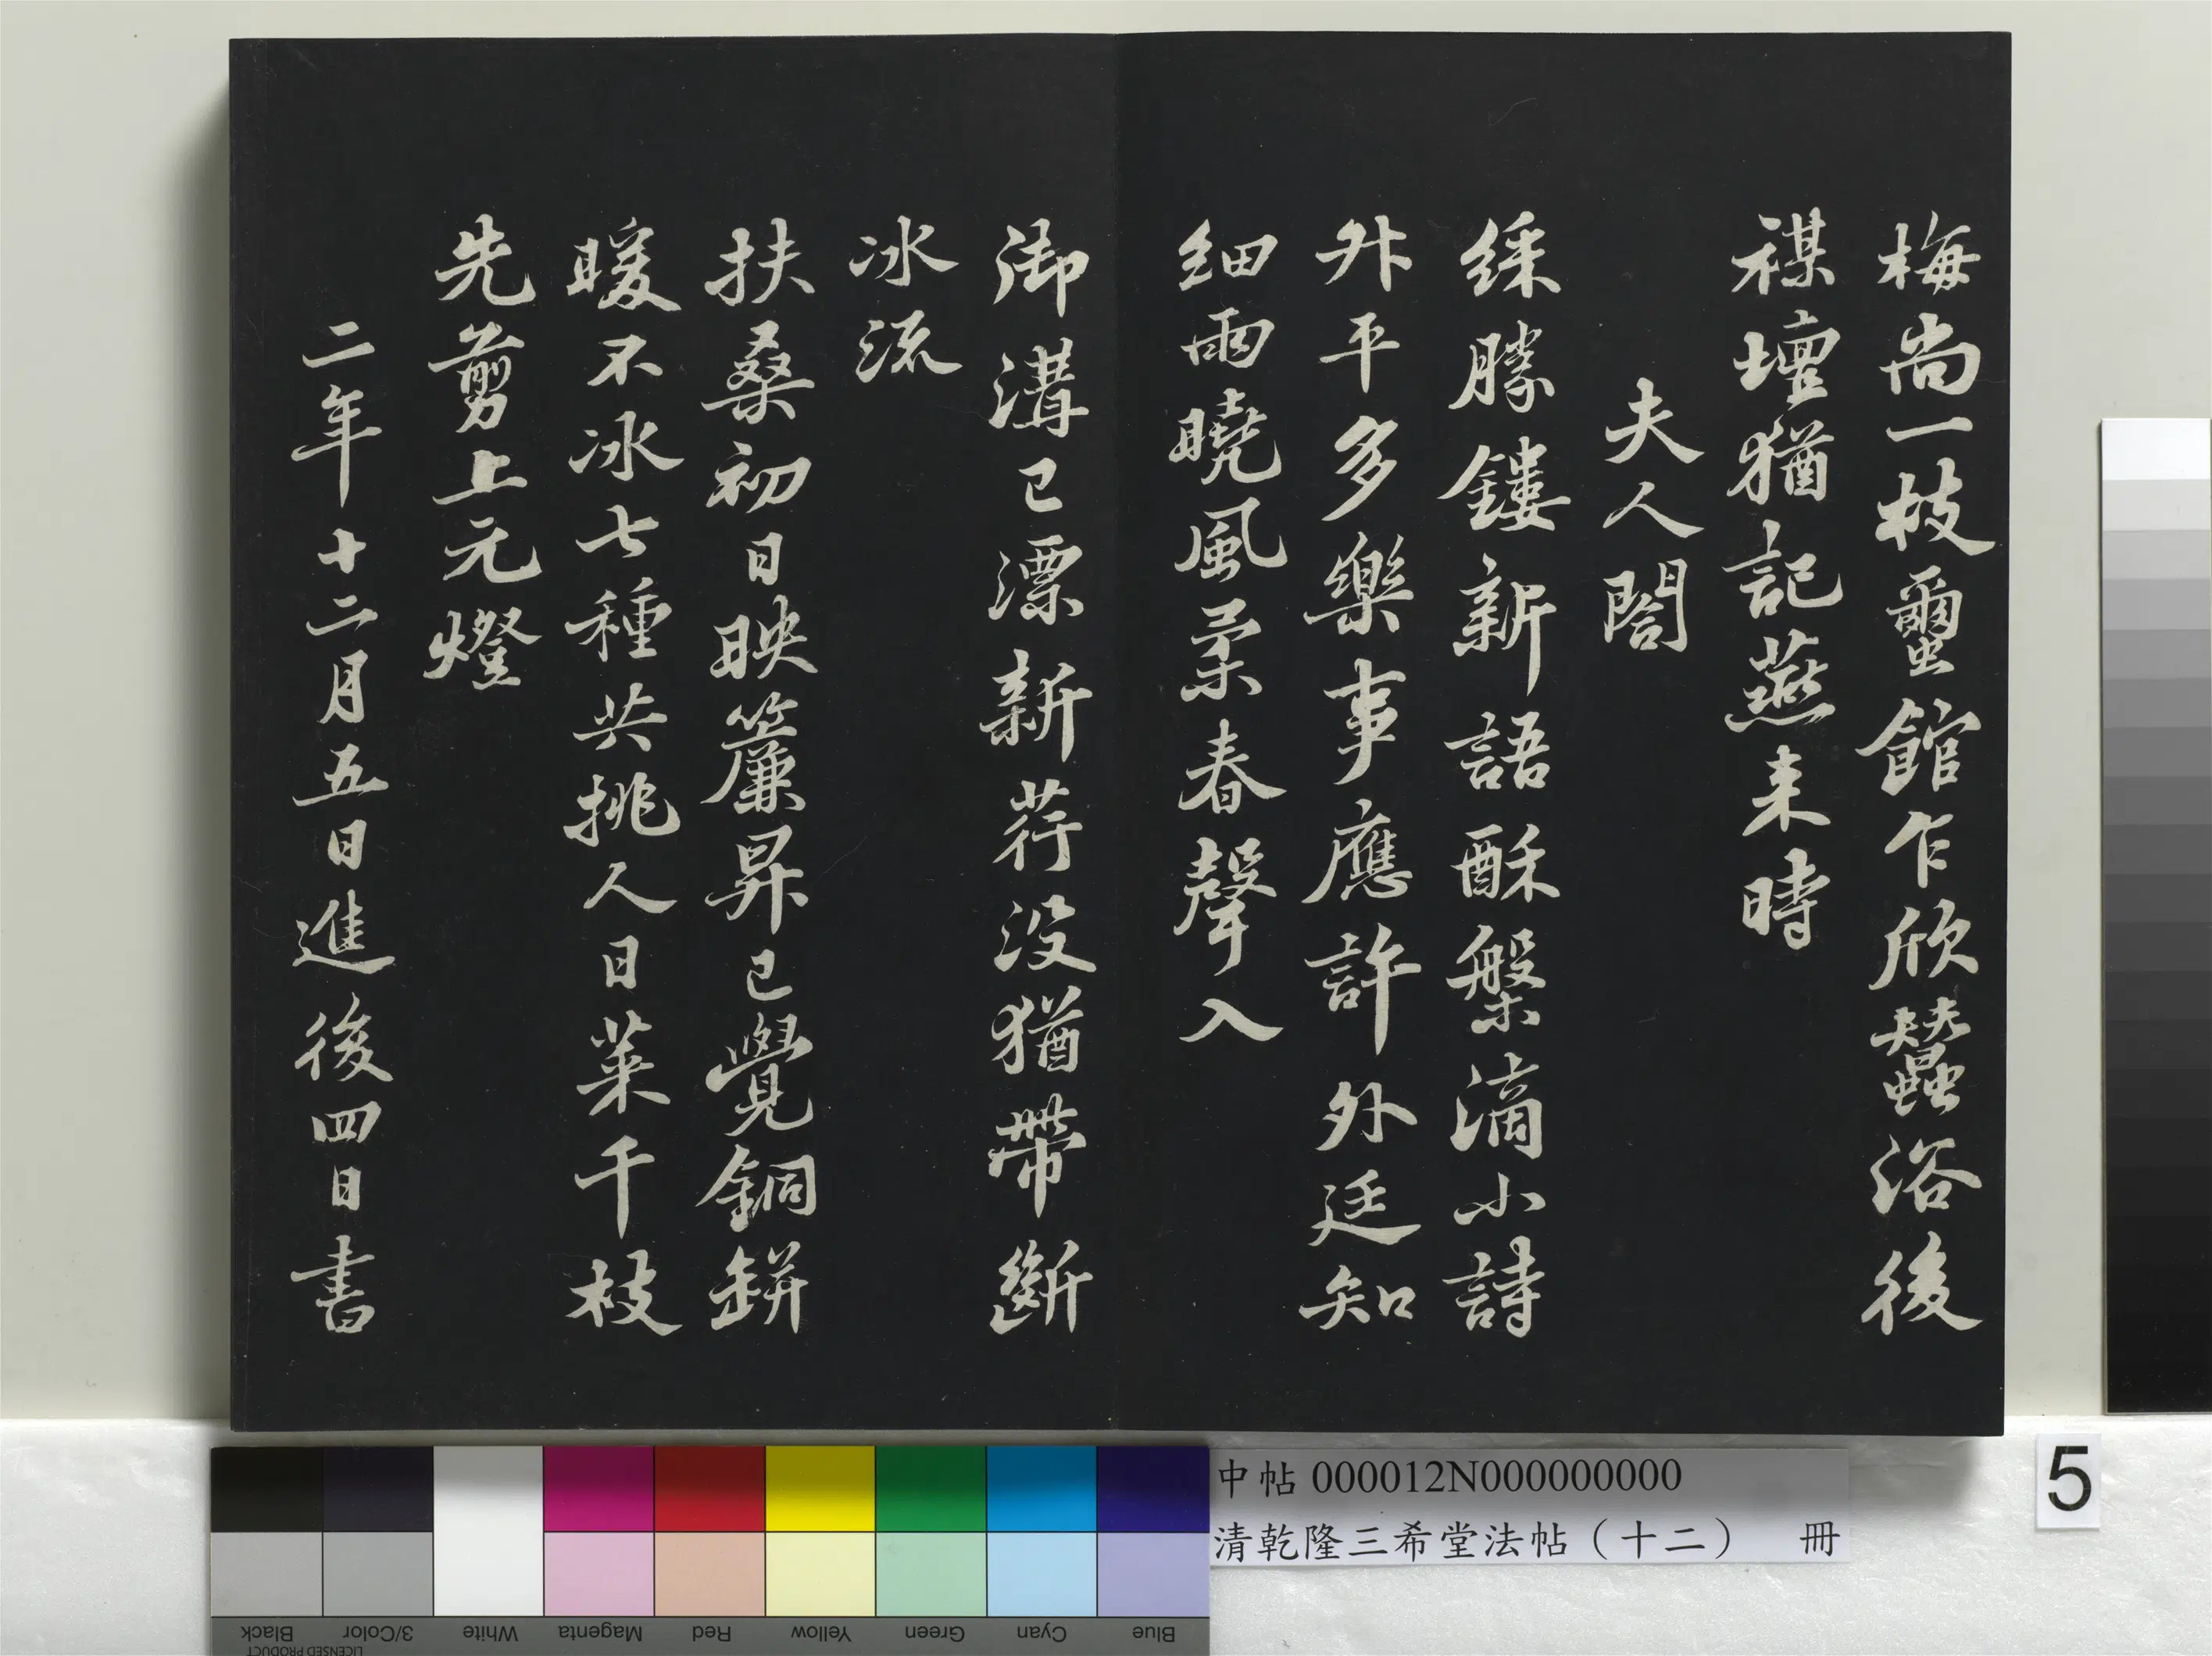 梅尚一枝蠒館乍欣蠶浴後
禖壇猶記燕来時
夫人閤
綵勝鏤新語酥槃滴小詩
升平多樂事應許外廷知
细雨曉風柔春聲入
御溝已漂新荇没猶帶断
冰流
扶桑初日映簾昇已覺銅缾
暖不冰七種共挑人日菜千枝
先剪上元燈
二年十二月五日進後四日書
中帖 000012N000000000
清乾隆三希堂法帖（十二） 冊
5
Black 3/Color White Magenta Red Yellow Green Cyan Blue
LICENSED PRODUCT